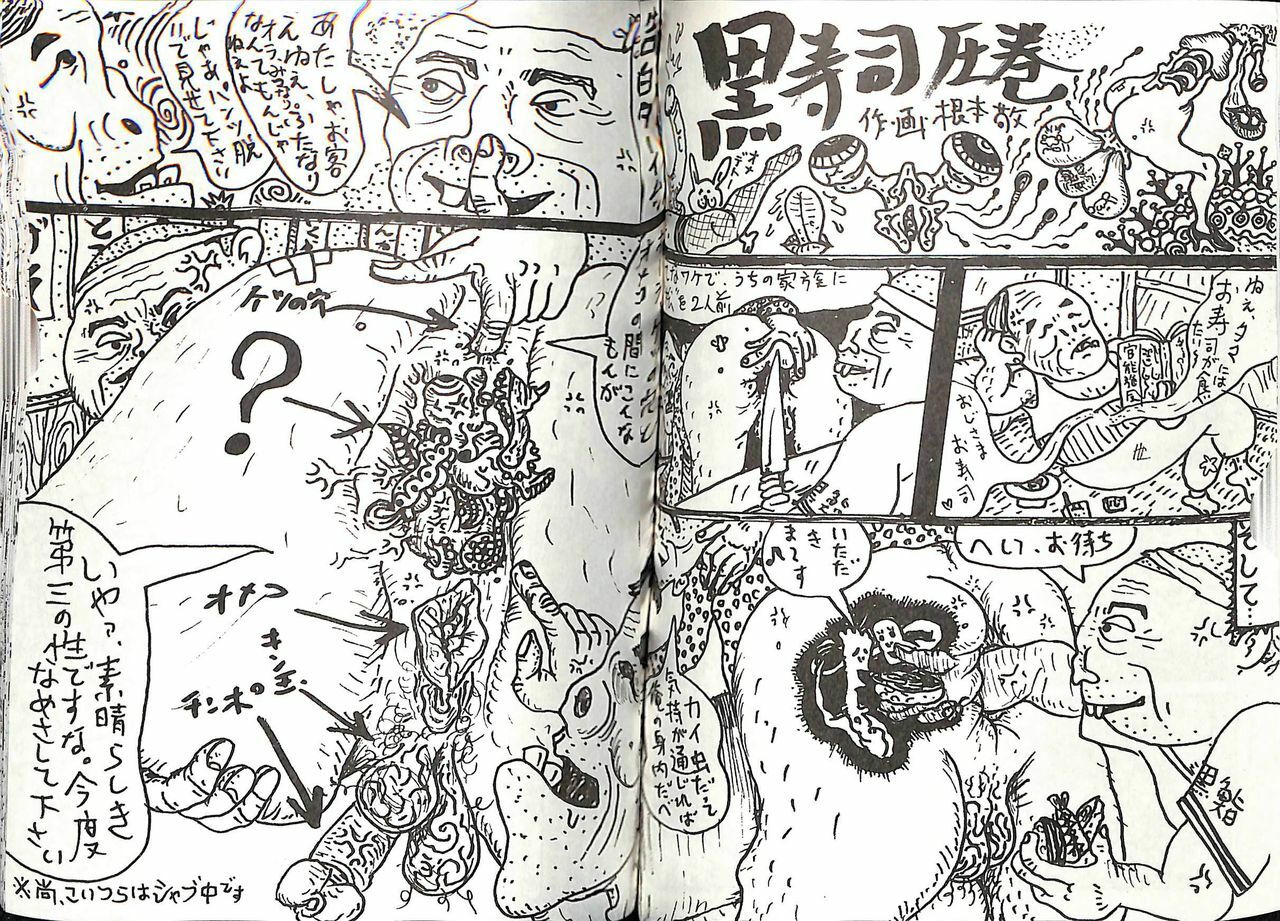 黒寿司圧巻
作・画 根本敬
オメ
デス
ねえ、タマには
お寿司が食べ
たい〜
おじさま
お寿司
官能譜
なワケで、うちの家族に
を2人前
そして…
へして、お待ち
いただ
き
ま〜す
カイ虫だって
気持が通じれば
の身内だべ
黒鮨
あたしゃ、お客
さん、ねえ、ふたなり
なんてもんじゃ
ねえよ
じゃあパンツ脱
いで見せて下さい
の間にこんな
もんが
ケツの穴
?
オメコ
キン玉
チンポ
いやァ、素晴らしき
第三の性ですな。今度
なめさして下さい
※尚、こいつらはシャブ中です